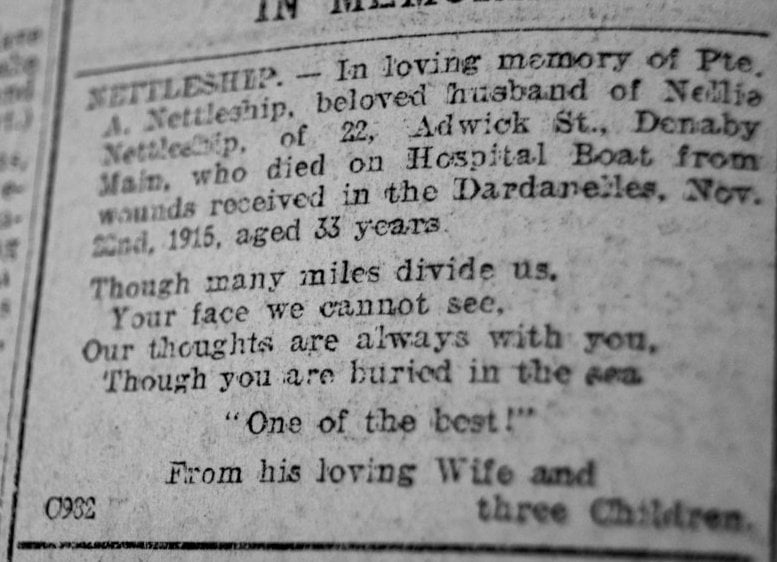 IN MEMORIAM
NETTLESHIP. — In loving memory of Pte.
A. Nettleship, beloved husband of Nellie
Nettleship, of 22, Adwick St., Denaby
Main, who died on Hospital Boat from
wounds received in the Dardanelles, Nov.
22nd, 1915, aged 33 years.
Though many miles divide us,
Your face we cannot see,
Our thoughts are always with you,
Though you are buried in the sea
"One of the best!"
From his loving Wife and
three Children.
C932